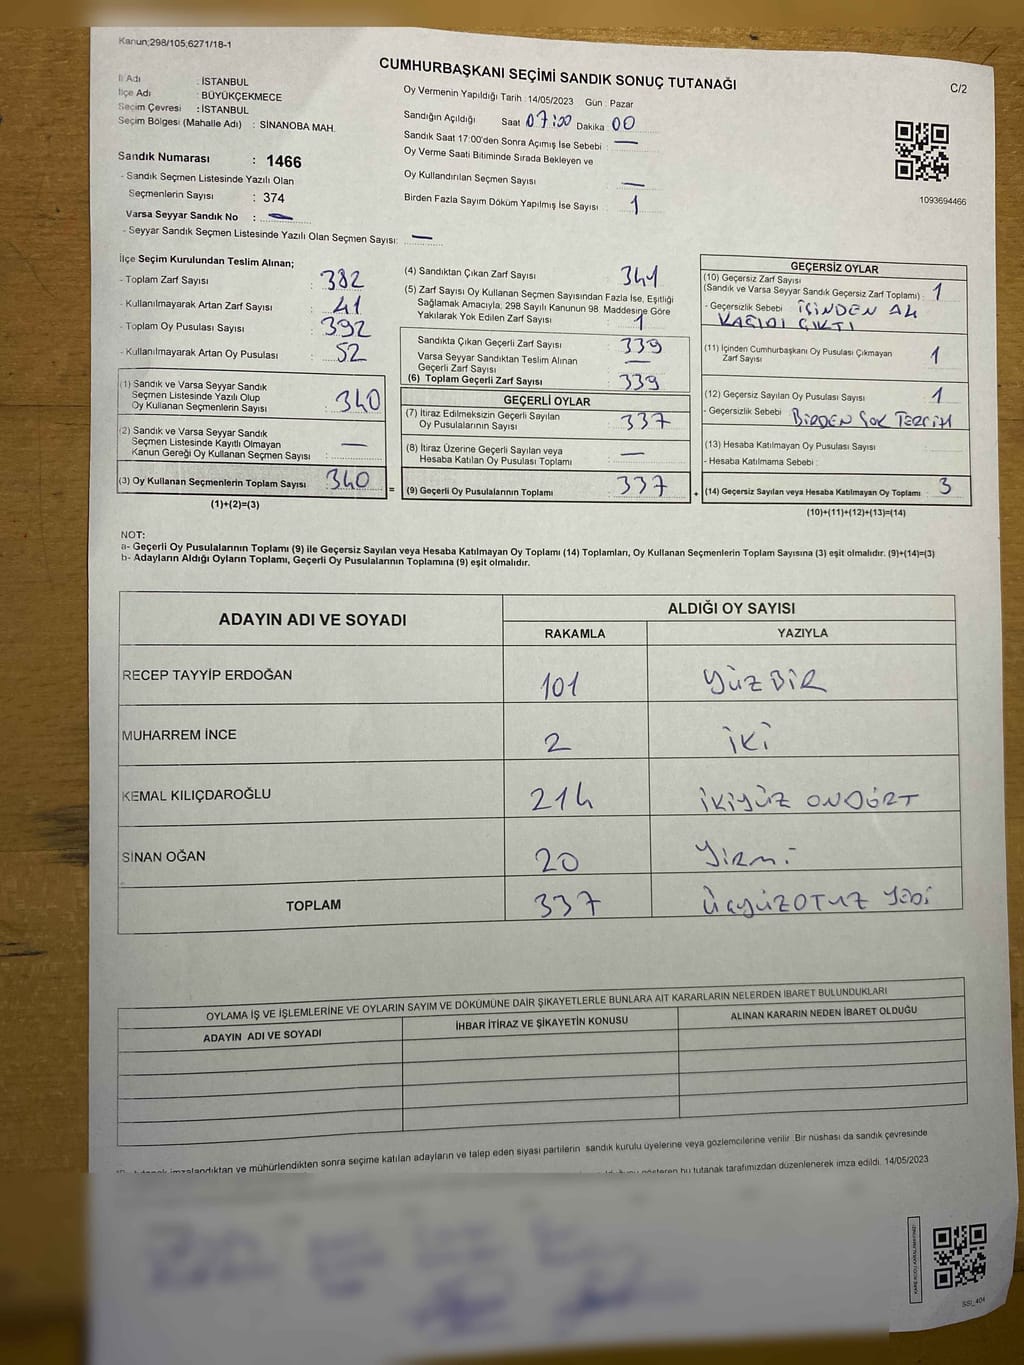 Kanun;298/105,6271/18-1
CUMHURBAŞKANI SEÇİMİ SANDIK SONUÇ TUTANAĞI
C/2
İl Adı : İSTANBUL
İlçe Adı : BÜYÜKÇEKMECE
Seçim Çevresi : İSTANBUL
Seçim Bölgesi (Mahalle Adı) : SİNANOBA MAH.
Sandık Numarası : 1466
- Sandık Seçmen Listesinde Yazılı Olan
Seçmenlerin Sayısı : 374
Varsa Seyyar Sandık No : —
- Seyyar Sandık Seçmen Listesinde Yazılı Olan Seçmen Sayısı: —
Oy Vermenin Yapıldığı Tarih : 14/05/2023 Gün : Pazar
Sandığın Açıldığı Saat 07:00 Dakika 00
Sandık Saat 17:00'den Sonra Açımış İse Sebebi : —
Oy Verme Saati Bitiminde Sırada Bekleyen ve
Oy Kullandırılan Seçmen Sayısı —
Birden Fazla Sayım Döküm Yapılmış İse Sayısı : 1
1093694466
İlçe Seçim Kurulundan Teslim Alınan;
- Toplam Zarf Sayısı : 382
- Kullanılmayarak Artan Zarf Sayısı : 41
- Toplam Oy Pusulası Sayısı : 392
- Kullanılmayarak Artan Oy Pusulası : 52
(1) Sandık ve Varsa Seyyar Sandık
Seçmen Listesinde Yazılı Olup
Oy Kullanan Seçmenlerin Sayısı : 340
(2) Sandık ve Varsa Seyyar Sandık
Seçmen Listesinde Kayıtlı Olmayan
Kanun Gereği Oy Kullanan Seçmen Sayısı : —
(3) Oy Kullanan Seçmenlerin Toplam Sayısı : 340
(1)+(2)=(3)
=
(4) Sandıktan Çıkan Zarf Sayısı 341
(5) Zarf Sayısı Oy Kullanan Seçmen Sayısından Fazla İse, Eşitliği
Sağlamak Amacıyla, 298 Sayılı Kanunun 98. Maddesine Göre
Yakılarak Yok Edilen Zarf Sayısı : 1
Sandıkta Çıkan Geçerli Zarf Sayısı : 339
Varsa Seyyar Sandıktan Teslim Alınan
Geçerli Zarf Sayısı : —
(6) Toplam Geçerli Zarf Sayısı : 339
GEÇERLİ OYLAR
(7) İtiraz Edilmeksizin Geçerli Sayılan
Oy Pusulalarının Sayısı : 337
(8) İtiraz Üzerine Geçerli Sayılan veya
Hesaba Katılan Oy Pusulası Toplamı : —
(9) Geçerli Oy Pusulalarının Toplamı : 337
+
GEÇERSİZ OYLAR
(10) Geçersiz Zarf Sayısı
(Sandık ve Varsa Seyyar Sandık Geçersiz Zarf Toplamı) : 1
- Geçersizlik Sebebi : İÇİNDEN
KAĞIDI ÇIKTI
(11) İçinden Cumhurbaşkanı Oy Pusulası Çıkmayan
Zarf Sayısı : 1
(12) Geçersiz Sayılan Oy Pusulası Sayısı : 1
- Geçersizlik Sebebi : BİRDEN ÇOK TERCİH
(13) Hesaba Katılmayan Oy Pusulası Sayısı :
- Hesaba Katılmama Sebebi :
(14) Geçersiz Sayılan veya Hesaba Katılmayan Oy Toplamı : 3
(10)+(11)+(12)+(13)=(14)
NOT:
a- Geçerli Oy Pusulalarının Toplamı (9) ile Geçersiz Sayılan veya Hesaba Katılmayan Oy Toplamı (14) Toplamları, Oy Kullanan Seçmenlerin Toplam Sayısına (3) eşit olmalıdır. (9)+(14)=(3)
b- Adayların Aldığı Oyların Toplamı, Geçerli Oy Pusulalarının Toplamına (9) eşit olmalıdır.
ADAYIN ADI VE SOYADI
ALDIĞI OY SAYISI
RAKAMLA YAZIYLA
RECEP TAYYİP ERDOĞAN 101 YÜZ BİR
MUHARREM İNCE 2 İKİ
KEMAL KILIÇDAROĞLU 214 İKİYÜZ ONDÖRT
SİNAN OĞAN 20 Yirmi
TOPLAM 337 ÜçyüzOTUZ Yedi
OYLAMA İŞ VE İŞLEMLERİNE VE OYLARIN SAYIM VE DÖKÜMÜNE DAİR ŞİKAYETLERLE BUNLARA AİT KARARLARIN NELERDEN İBARET BULUNDUKLARI
ADAYIN ADI VE SOYADI İHBAR İTİRAZ VE ŞİKAYETİN KONUSU ALINAN KARARIN NEDEN İBARET OLDUĞU
tutanak imzalandıktan ve mühürlendikten sonra seçime katılan adayların ve talep eden siyasi partilerin sandık kurulu üyelerine veya gözlemcilerine verilir. Bir nüshası da sandık çevresinde
gösteren bu tutanak tarafımızdan düzenlenerek imza edildi. 14/05/2023
SSİ_404